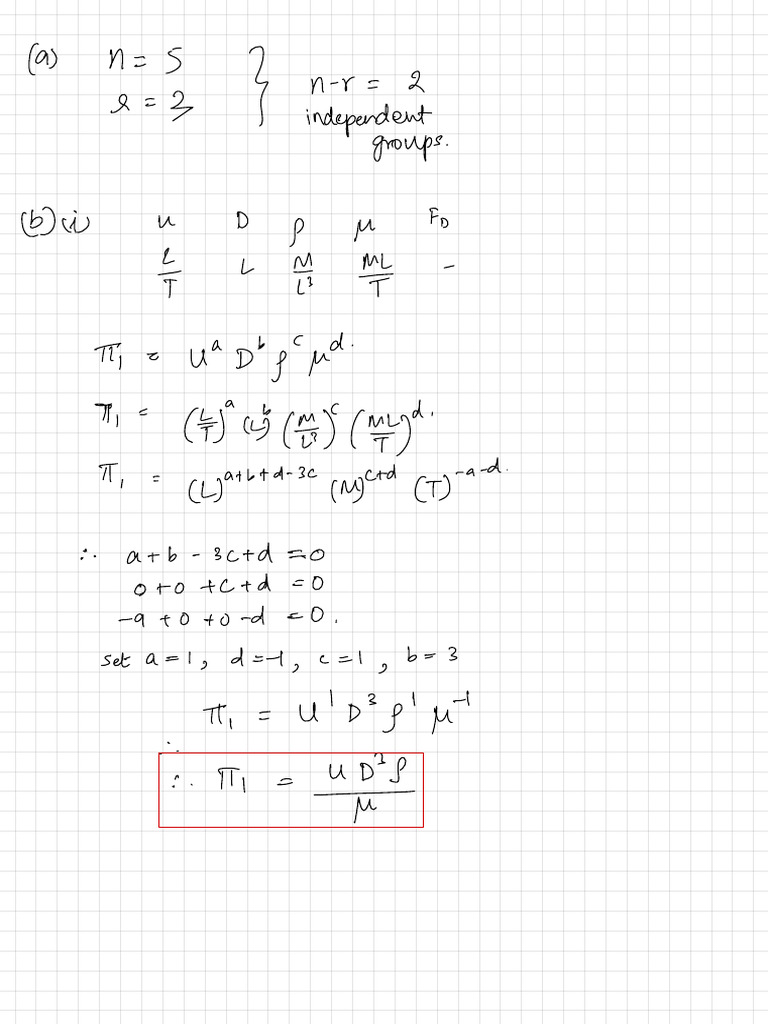 (a) n = 5
r = 3
} n-r = 2
independent
groups.
(b) (i) u D ρ μ F_D
L/T L M/L³ ML/T -
π₁ = U^a D^b ρ^c μ^d.
π₁ = (L/T)^a (L)^b (M/L³)^c (ML/T)^d.
π₁ = (L)^(a+b+d-3c) (M)^(c+d) (T)^(-a-d).
∴ a+b - 3c+d = 0
0+0 +c+d = 0
-a +0 +0 -d = 0.
set a=1, d=-1, c=1, b=3
π₁ = U¹ D³ ρ¹ μ⁻¹
∴
∴ π₁ = u D³ ρ / μ